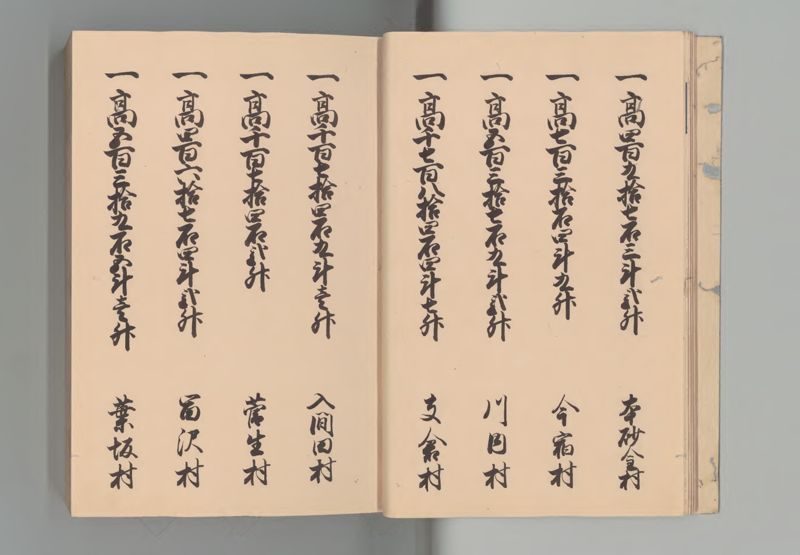 一高四百九拾七石三斗弐升 本砂金村
一高七百三拾石四斗九升 今宿村
一高五百三拾七石九斗弐升 川内村
一高千七百八拾四石四斗七升 支倉村
一高千百七拾四石九斗壱升 入間田村
一高千百七拾四石弐升 菅生村
一高四百六拾七石四斗弐升 沢村
一高五百三拾九石五斗壱升 葉坂村